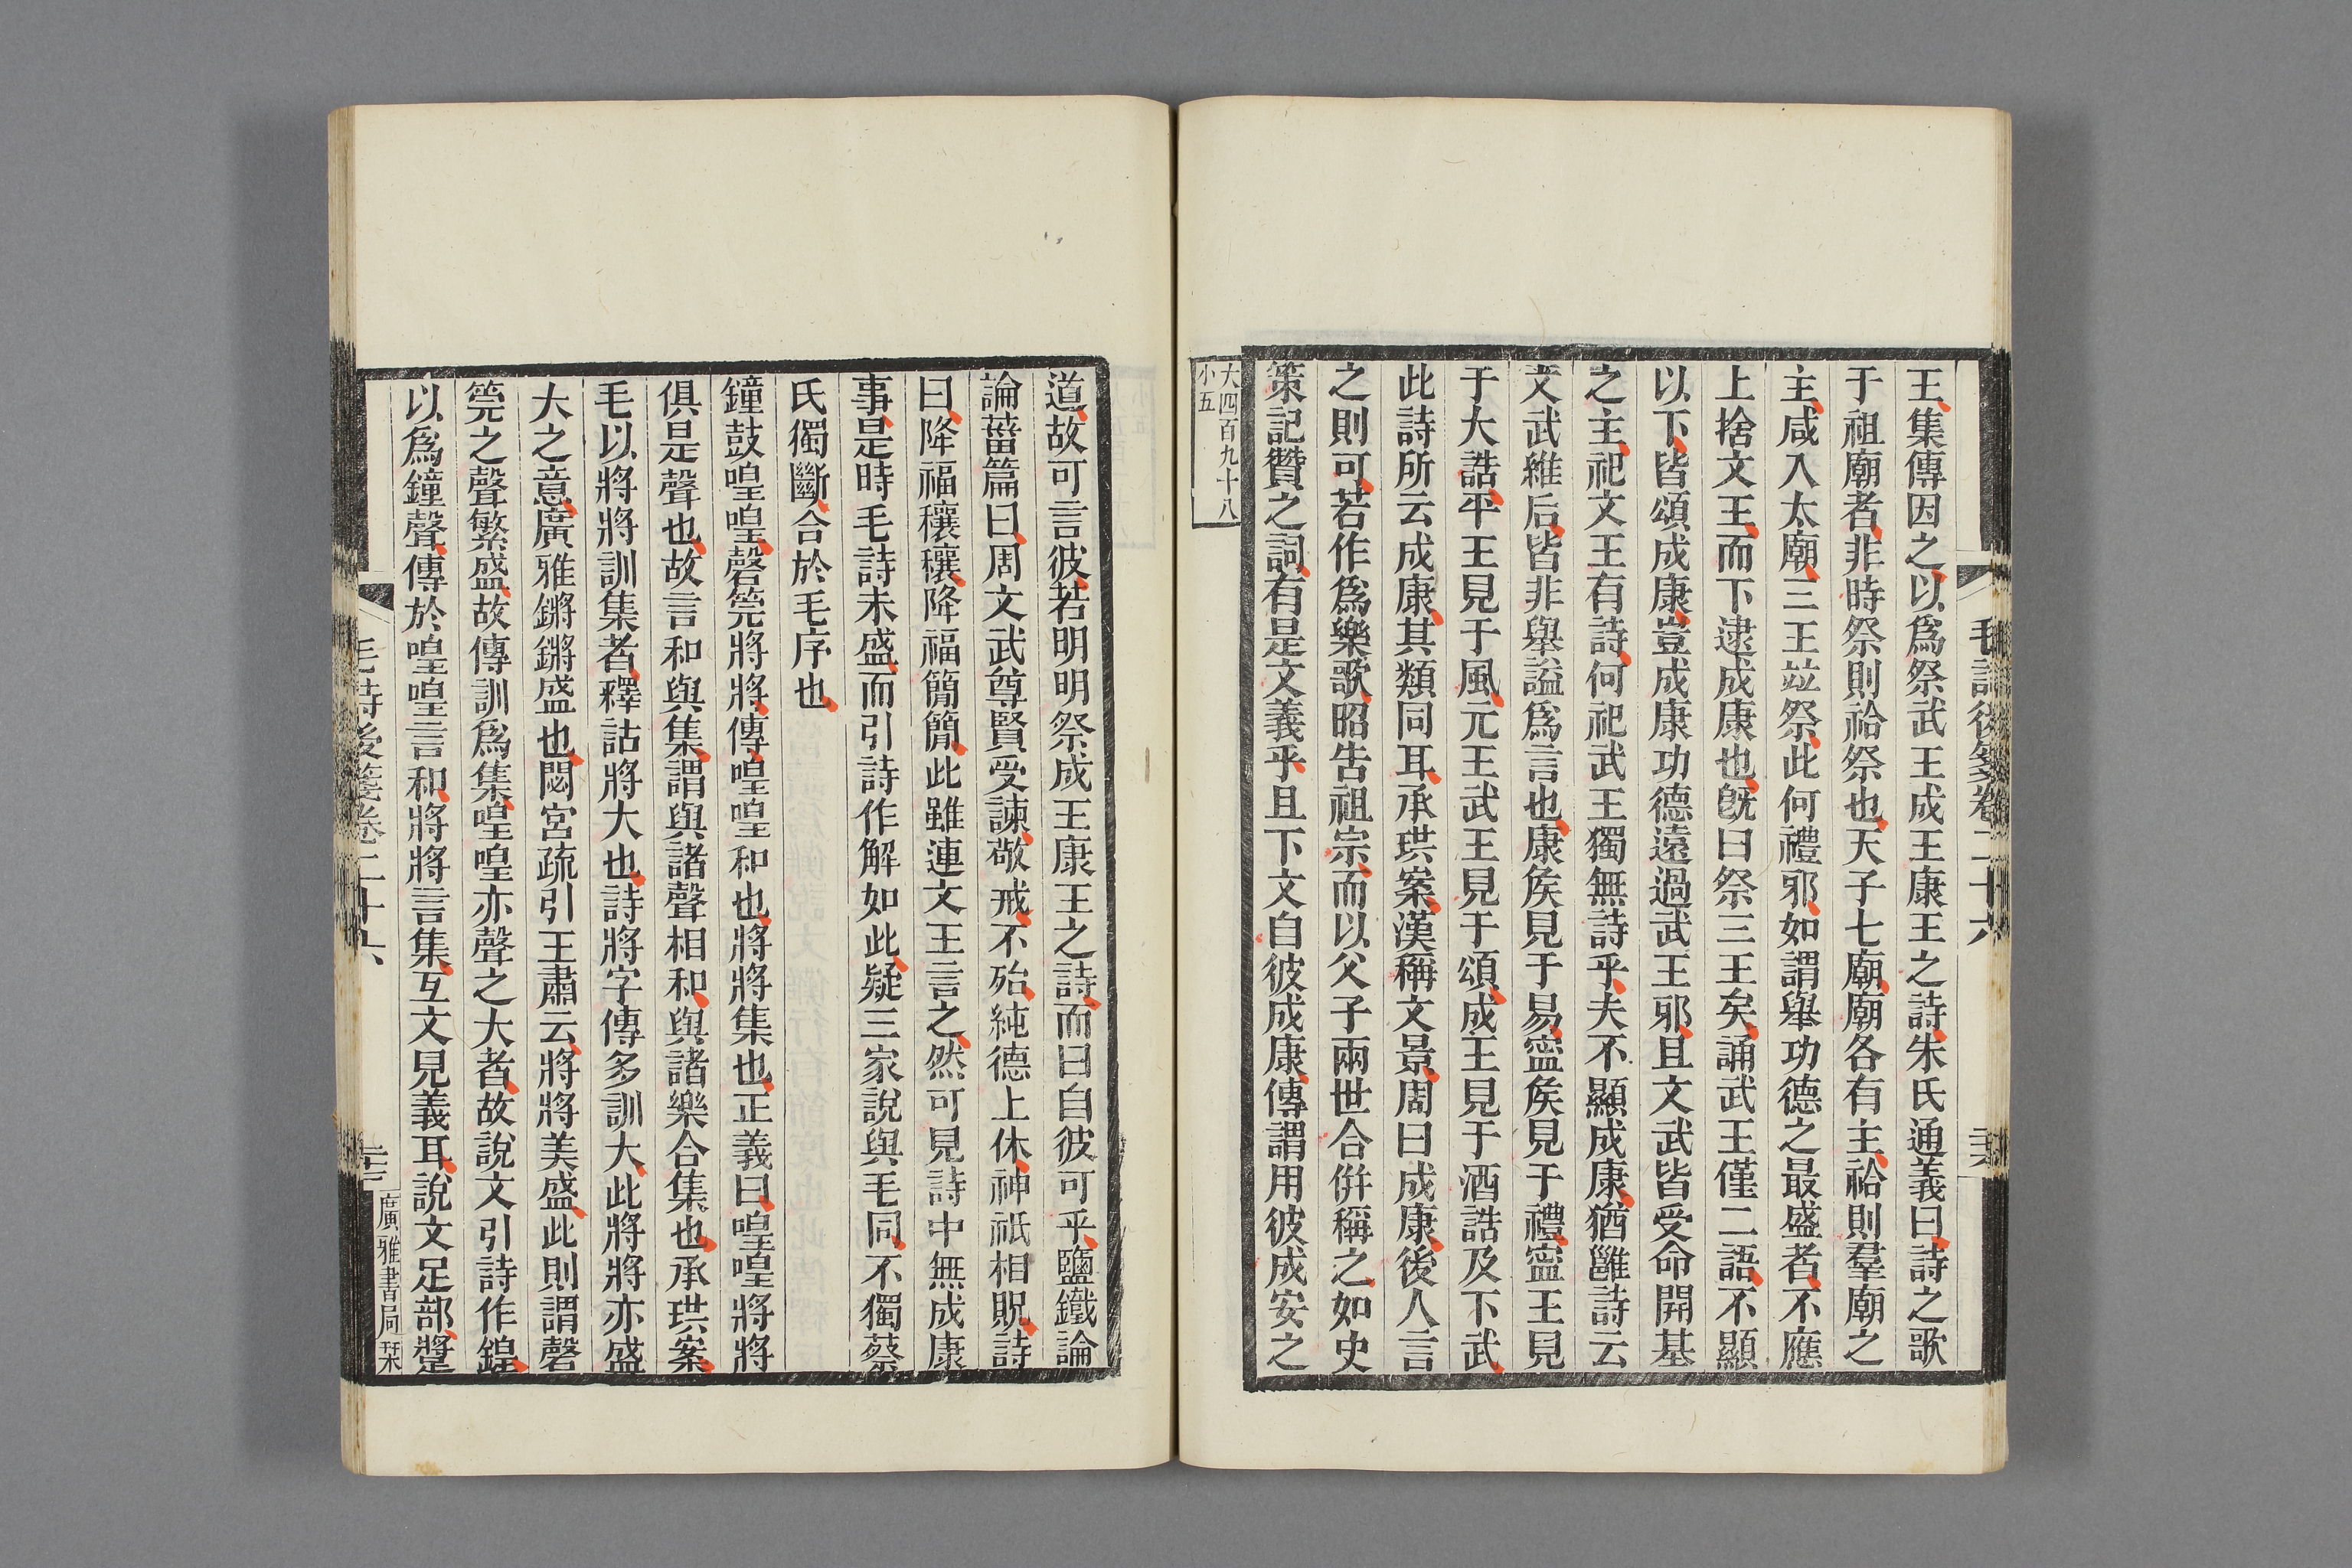 王集傳因之以爲祭武王成王康王之詩朱氏通義曰詩之歌
于祖廟者非時祭則祫祭也天子七廟廟各有主祫則羣廟之
主咸入太廟三王竝祭此何禮邪如謂舉功德之最盛者不應
上捨文王而下逮成康也旣曰祭三王矣誦武王僅二語不顯
以下皆頌成康豈成康功德遠過武王邪且文武皆受命開基
之主祀文王有詩何祀武王獨無詩乎夫不顯成康猶雝詩云
文武維后皆非舉謚爲言也康矦見于易寍矦見于禮寍王見
于大誥平王見于風元王武王見于頌成王見于酒誥及下武
此詩所云成康其類同耳承珙案漢稱文景周曰成康後人言
之則可若作爲樂歌昭告祖宗而以父子兩世合倂稱之如史
策記贊之詞有是文義乎且下文自彼成康傳謂用彼成安之
大四百九十八
小五
毛詩後箋卷二十六
道故可言彼若明明祭成王康王之詩而曰自彼可乎鹽鐵論
論葘篇曰周文武尊賢受諫敬戒不殆純德上休神祇相貺詩
曰降福穰穰降福簡簡此雖連文王言之然可見詩中無成康
事是時毛詩未盛而引詩作解如此疑三家說與毛同不獨蔡
氏獨斷合於毛序也
鐘鼓喤喤磬筦將將傳喤喤和也將將集也正義曰喤喤將將
俱是聲也故言和與集謂與諸聲相和與諸樂合集也承珙案
毛以將將訓集者釋詁將大也詩將字傳多訓大此將將亦盛
大之意廣雅鏘鏘盛也閟宮疏引王肅云將將美盛此則謂磬
筦之聲繁盛故傳訓爲集喤喤亦聲之大者故說文引詩作鍠
以爲鐘聲傳於喤喤言和將將言集互文見義耳說文足部蹡
毛詩後箋卷二十六
廣雅書局栞